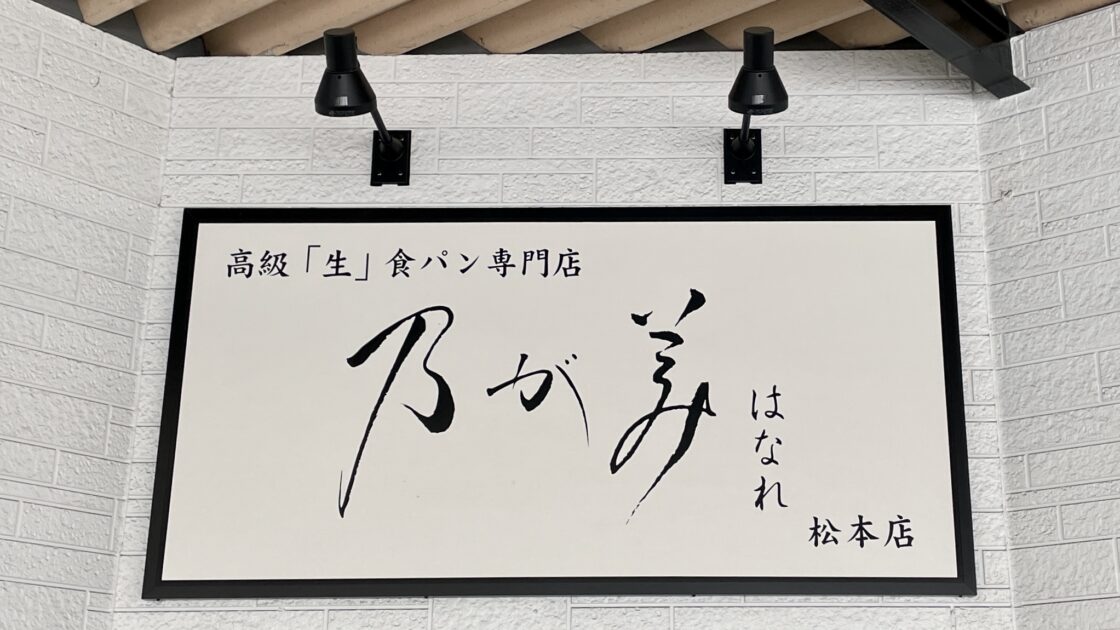 高級「生」食パン専門店
乃が美
はなれ
松本店